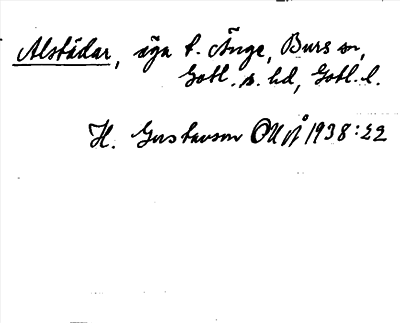 Alstädar, äga t. Änge, Burs sn,
Gotl. s. hd, Gotl. l.
H. Gustavson OUÅ 1938:22